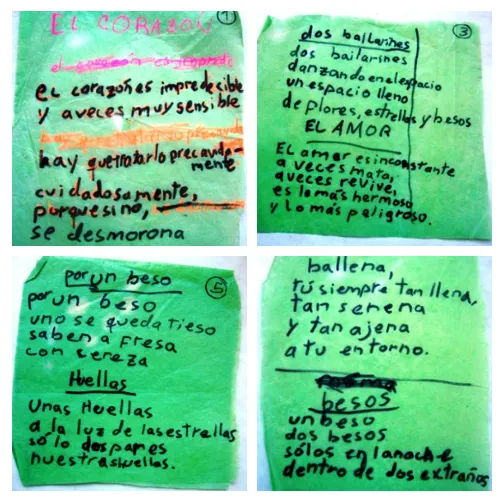 EL CORAZÓN
1
el corazón es
el corazones impredecible
y aveces muy sensible
hay que tratarlo precavida-
mente,
cuidadosamente,
porque si no,
se desmorona
3
dos bailarines
dos bailarines
danzando en el espacio
un espacio lleno
de flores, estrellas y besos
EL AMOR
El amor es inconstante
a veces mata,
aveces revive,
es lo más hermoso
y lo más peligroso.
5
por un beso
por un beso
uno se queda tieso
saben a fresa
con cereza
Huellas
Unas Huellas
a la luz de las estrellas
sólo dos pares
nuestras huellas.
ballena,
tú siempre tan llena,
tan serena
y tan ajena
a tu entorno.
besos
un beso
dos besos
sólos en la noche
dentro de dos extraños